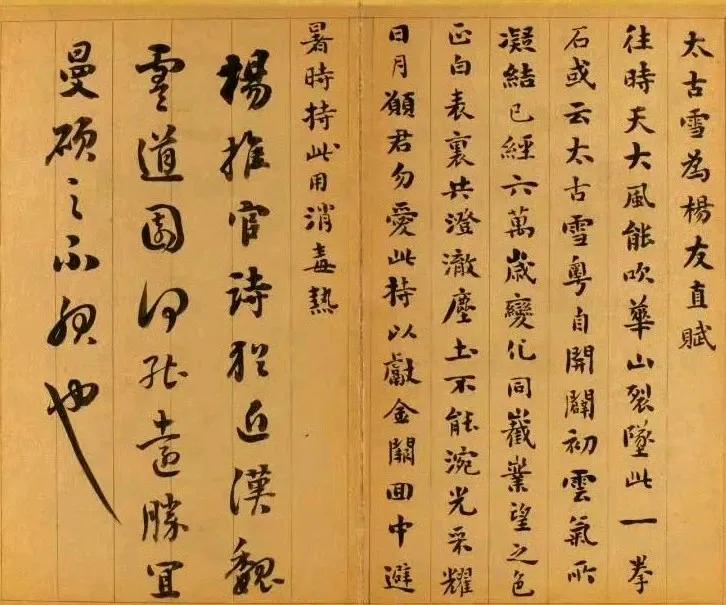 太古雪為楊友直賦
往時天大風能吹華山裂墜此一拳
石或云太古雪粵自開闢初雲氣所
凝結已經六萬歲變化同巀業望之色
正白表裏共澄澈塵土不能涴光采耀
日月願君勿愛此持以獻金闕回中避
暑時持此用消毒熱
楊推官詩近漢魏
虞道園何能遠勝宜
曼碩之不服也